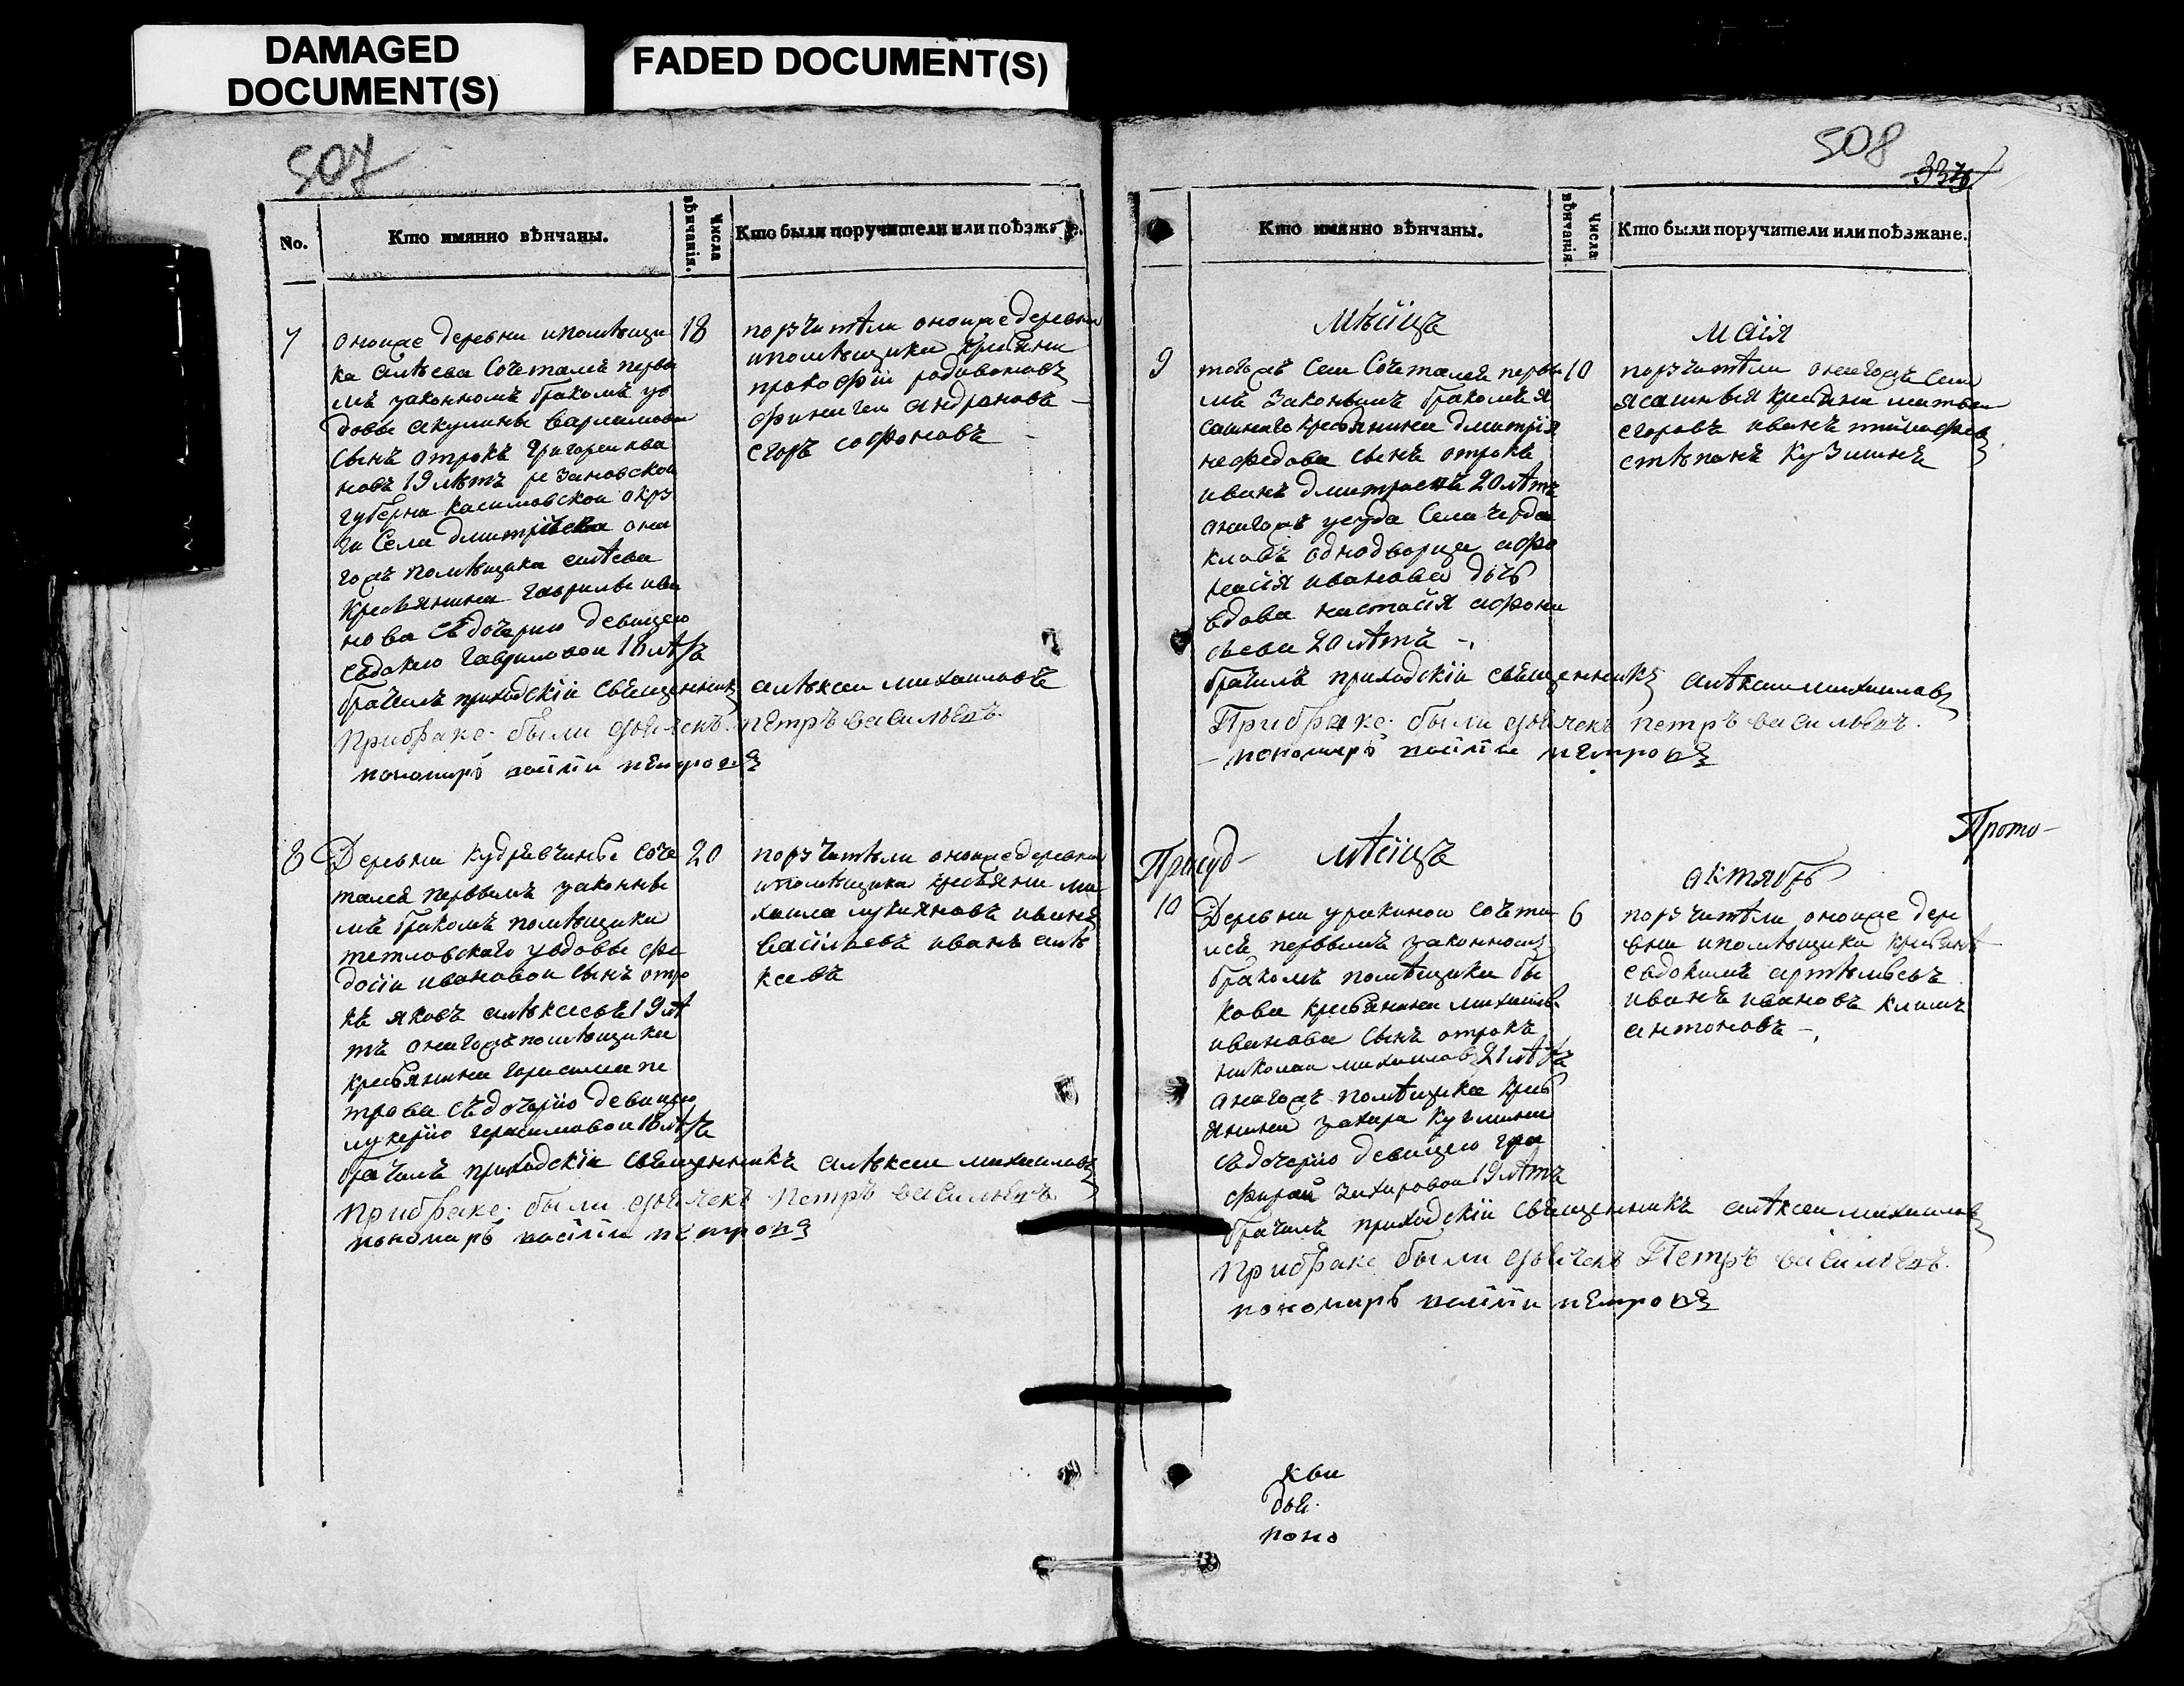 DAMAGED
DOCUMENT(S)
FADED DOCUMENT(S)
507
No.
Кто имянно вѣнчаны.
Числа
вѣнчанія.
Кто были поручители или поѣзжане.
7
оноиже деревни и помѣщи
ка алѣева Сочеталсѧ первы
мъ законномъ бракомъ уо
довы акулины варламовои
сынъ отрокъ Григореи ива
новъ 19 лѣтъ резановскои
губерни касимовскои окру
ги Села дмитрѣева она
гожъ помѣщика алѣева
кресьянина гаврилы ива
нова съ дочерию девицею
евдокию гавриловои 18 лѣтъ
18
поручитѣли оноиже деревни
и помѣщика крисьяни
прокофіи родивоновъ
андроновъ
егоръ софоновъ
брачилъ приходскіи свѣщенникъ алѣксеи михаиловъ
При браке были дьѣчекъ пЕтръ васильЕвъ
пономарь петровъ
8
Деревни кудрѣвчины соче
талсѧ первымъ законны
мъ бракомъ помѣщика
тетловскаго уодовы фе
досіи ивановои сынъ отро
къ яковъ алѣксеевъ 19 лѣ
тъ онагожъ помѣщика
кресьянина гарасима пе
трова съ дочерію девицею
лукерию герасимовои 18 лѣтъ
20
поручитѣли оноиже деревни
и помѣщика кресьяни ми
хаила лукияновъ иванъ
васильевъ иванъ алѣ
ксевъ
брачилъ приходскіи свѣщенникъ алѣксеи михаиловъ
при браке были дьѣчекъ петръ васильЕвъ
пономарь петровъ
508
Кто имянно вѣнчаны.
Числа
вѣнчанія.
Кто были поручители или поѣзжане.
мѣсіцъ
маія
9
тогожъ Села Сочеталсѧ первы
мъ Законымъ бракомъ я
сашнаго кресьянина дмитрія
нефедова сынъ отрокъ
иванъ дмитреевъ 20 лѣтъ
онагожъ уезда Села черда
кловъ однодворца афо
насія иванова дочь
вдова настасія афона
сьева 20 лѣтъ
10
поручитѣли онагожъ Села
ясашныя кресьяни матвеи
егоровъ иванъ тимофеев
стѣпанъ кузминъ
брачилъ приходскіи свѣщенникъ алѣксеи михаиловъ
При браке были дьѣчекъ петръ васильЕвъ
пономарь петровъ
Прото-
Присуд-
мѣсіцъ
октябрь
10
Деревни уракинои сочета
лсѧ первымъ законномъ
бракомъ помѣщика бы
кова кресьянина михаилы
иванова сынъ отрокъ
николаи михаиловъ 21 лѣтъ
онагожъ помѣщика кресь
янина захара кузмина
съ дочерию девицею гла
фирои захаровои 19 лѣтъ
6
поручитѣли оноиже дере
вни и помѣщика кресьянѣ
евдокимъ артѣмьевъ
иванъ ивановъ климъ
антоновъ
брачилъ приходскіи свѣщенникъ алѣксеи михаилов
при браке были дьѣчекъ Петръ васильЕвъ
пономарь петровъ
дьѣ
поно